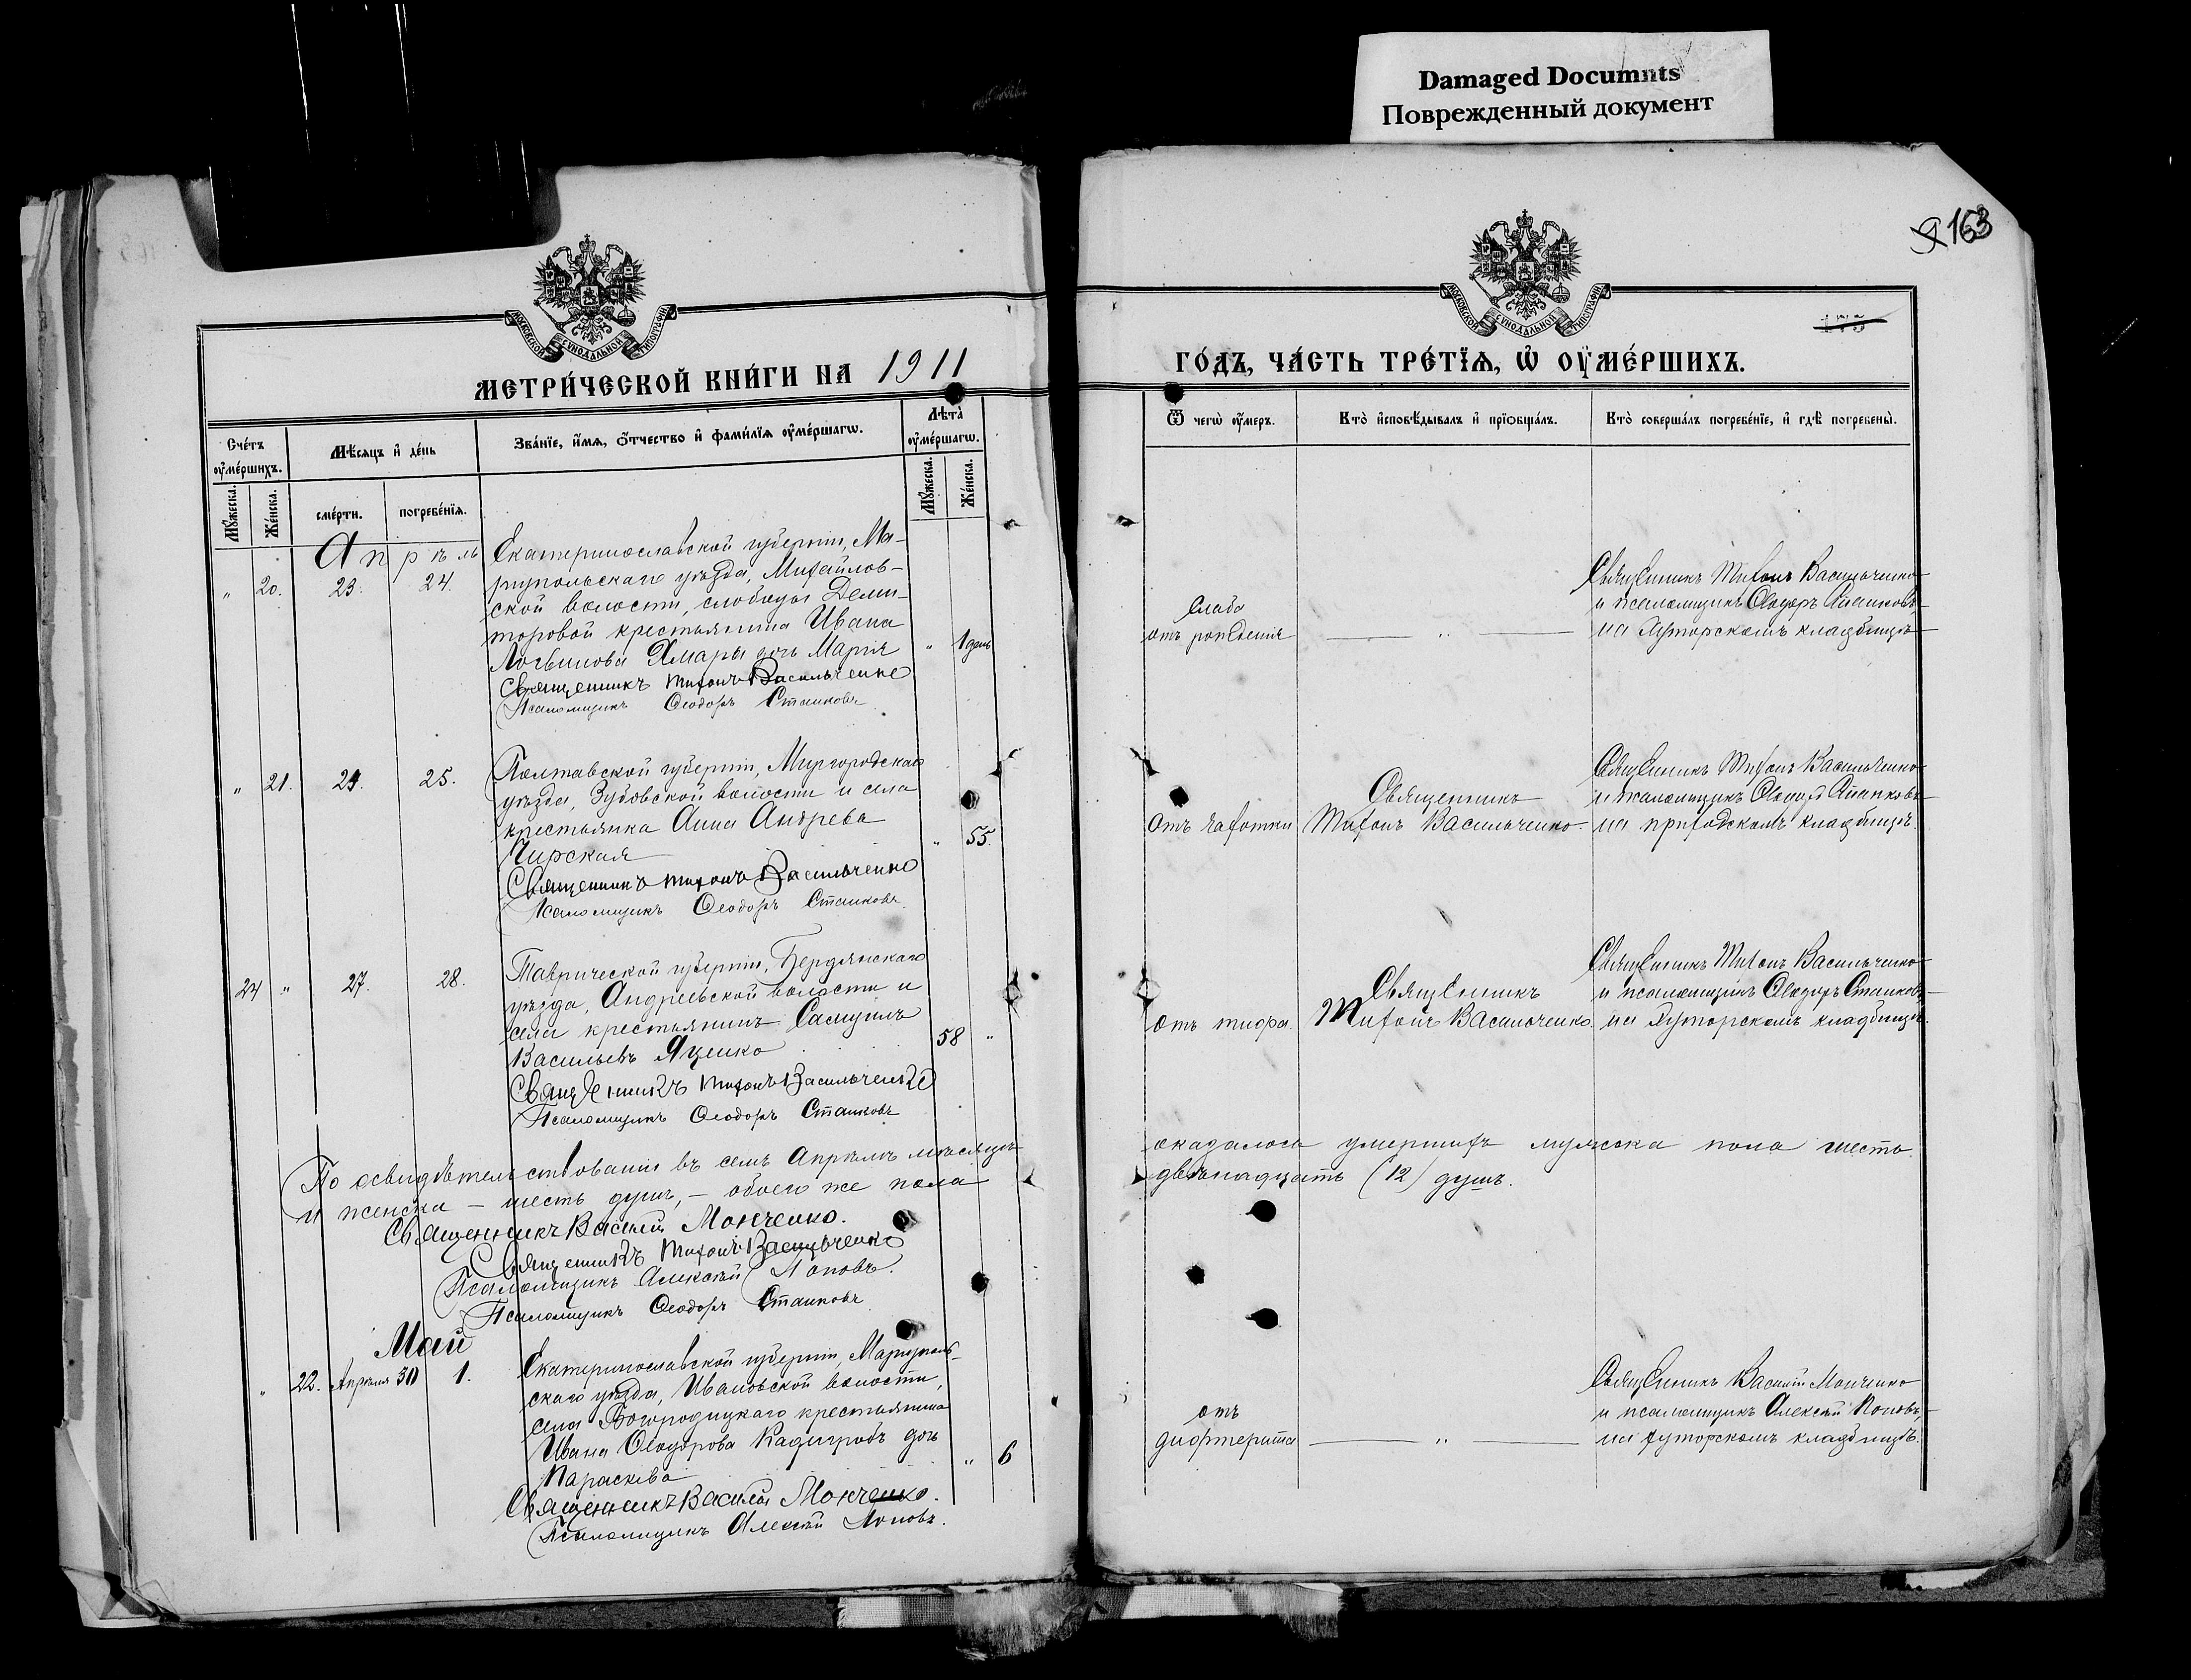 Damaged Documnts
Поврежденный документ
163
МОСКОВСКОЙ СѴНОДАЛЬНОЙ ТИПОГРАФІИ
МОСКОВСКОЙ СѴНОДАЛЬНОЙ ТИПОГРАФІИ
МЕТРИ́ЧЕСКОЙ КНИ́ГИ НА 1911
ГО́ДЪ, ЧА́СТЬ ТРЕ́ТЇѦ, Ѡ҆ ОУ҆МЕ́РШИХЪ.
Сче́тъ оу҆ме́ршихъ.
Мѣ́сѧцъ и҆ де́нь
Зва́нїе, и҆́мѧ, ѻ҆́тчество и҆ фами́лїѧ оу҆ме́ршагѡ.
Лѣ́та̀ оу҆ме́ршагѡ.
Ѿ чегѡ̀ оу҆́меръ.
Кто̀ и҆сповѣ́дывалъ и҆ прїѻбща́лъ.
Кто̀ соверша́лъ погребе́нїе, и҆ гдѣ̀ погребены̀.
Мꙋ́жеска.
Же́нска.
сме́рти.
погребе́нїѧ.
Мꙋ́жеска.
Же́нска.
Апрѣль
" 20. 23. 24.
Екатеринославской губерніи, Ма-
ріупольскаго уѣзда, Михайлов-
ской волости, слободы Дели-
торовой крестьянина Ивана
Логвинова Хмары дочь Марія " 1 день
Священникъ Тихонъ Васильченко
Псаломщикъ Ѳеодоръ Станковъ
Слаба
отъ рожденія — " —
Священникъ Тихонъ Васильченко
и псаломщикъ Ѳеодоръ Станковъ
на Хуторскомъ кладбищѣ
" 21. 24. 25.
Полтавской губерніи, Миргородскаго
уѣзда, Зубовской волости и села
крестьянка Анна Андрева
Чирская " 55.
Священникъ Тихонъ Васильченко
Псаломщикъ Ѳеодоръ Станковъ
отъ чахотки
Священникъ
Тихонъ Васильченко.
Священникъ Тихонъ Васильченко
и псаломщикъ Ѳеодоръ Станковъ
на приходскомъ кладбищѣ.
24 " 27. 28.
Таврической губерніи, Бердянскаго
уѣзда, Андреевской волости и
села крестьянинъ Самуилъ
Васильевъ Яценко 58 "
Священникъ Тихонъ Васильченко
Псаломщикъ Ѳеодоръ Станковъ
отъ тифа.
Священникъ
Тихонъ Васильченко.
Священникъ Тихонъ Васильченко
и псаломщикъ Ѳеодоръ Станковъ
на Хуторскомъ кладбищѣ.
По освидѣтельствованіи въ семъ Апрѣлѣ мѣсяцѣ оказалось умершихъ мужска пола шесть
и женска — шесть душъ, — обоего же пола двѣнадцать (12) душъ.
Священникъ Василій Монченко.
Священникъ Тихонъ Васильченко
Псаломщикъ Алексѣй Поповъ.
Псаломщикъ Ѳеодоръ Станковъ
Май
" 22. Апрѣля 30 1.
Екатеринославской губерніи, Маріуполь-
скаго уѣзда, Ивановской волости,
села Богородицкаго крестьянина
Ивана Ѳеодорова Кадигробъ дочь
Параскева " 6
Священникъ Василій Монченко.
Псаломщикъ Алексѣй Поповъ.
отъ
дифтерита — " —
Священникъ Василій Монченко
и псаломщикъ Алексѣй Поповъ,
на хуторскомъ кладбищѣ.